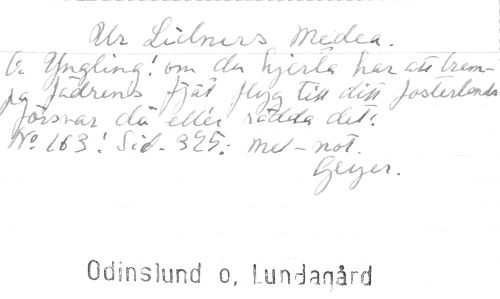 Ur Lidners Medea.
O. Yngling! om du hjerta har att trem-
pa fädrens fjät flyg till ditt fosterlands
försvar dö eller rädda det!
No 163! Sid. 325. mel-not.
Geijer.
Odinslund o, Lundagård